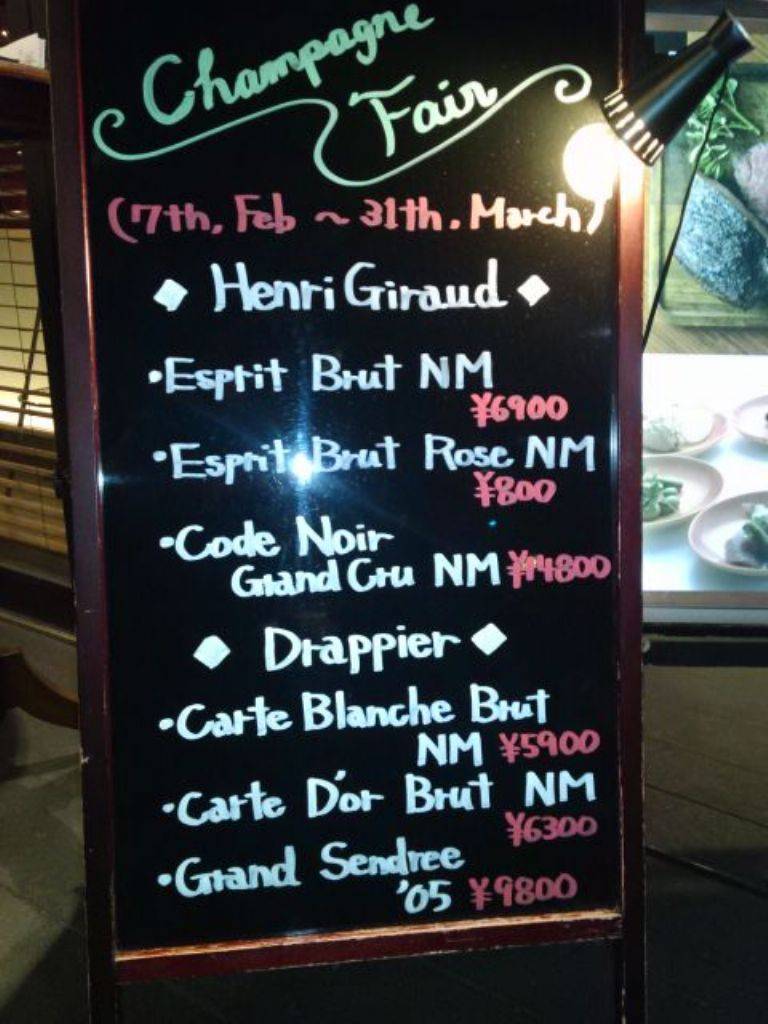 Champagne
Fair
(7th, Feb ~ 31th. March)
◆ Henri Giraud ◆
・Esprit Brut NM
¥6900
・Esprit Brut Rose NM
¥800
・Code Noir
Grand Cru NM ¥14800
◆ Drappier ◆
・Carte Blanche Brut
NM ¥5900
・Carte D'or Brut NM
¥6300
・Grand Sendree
'05 ¥9800